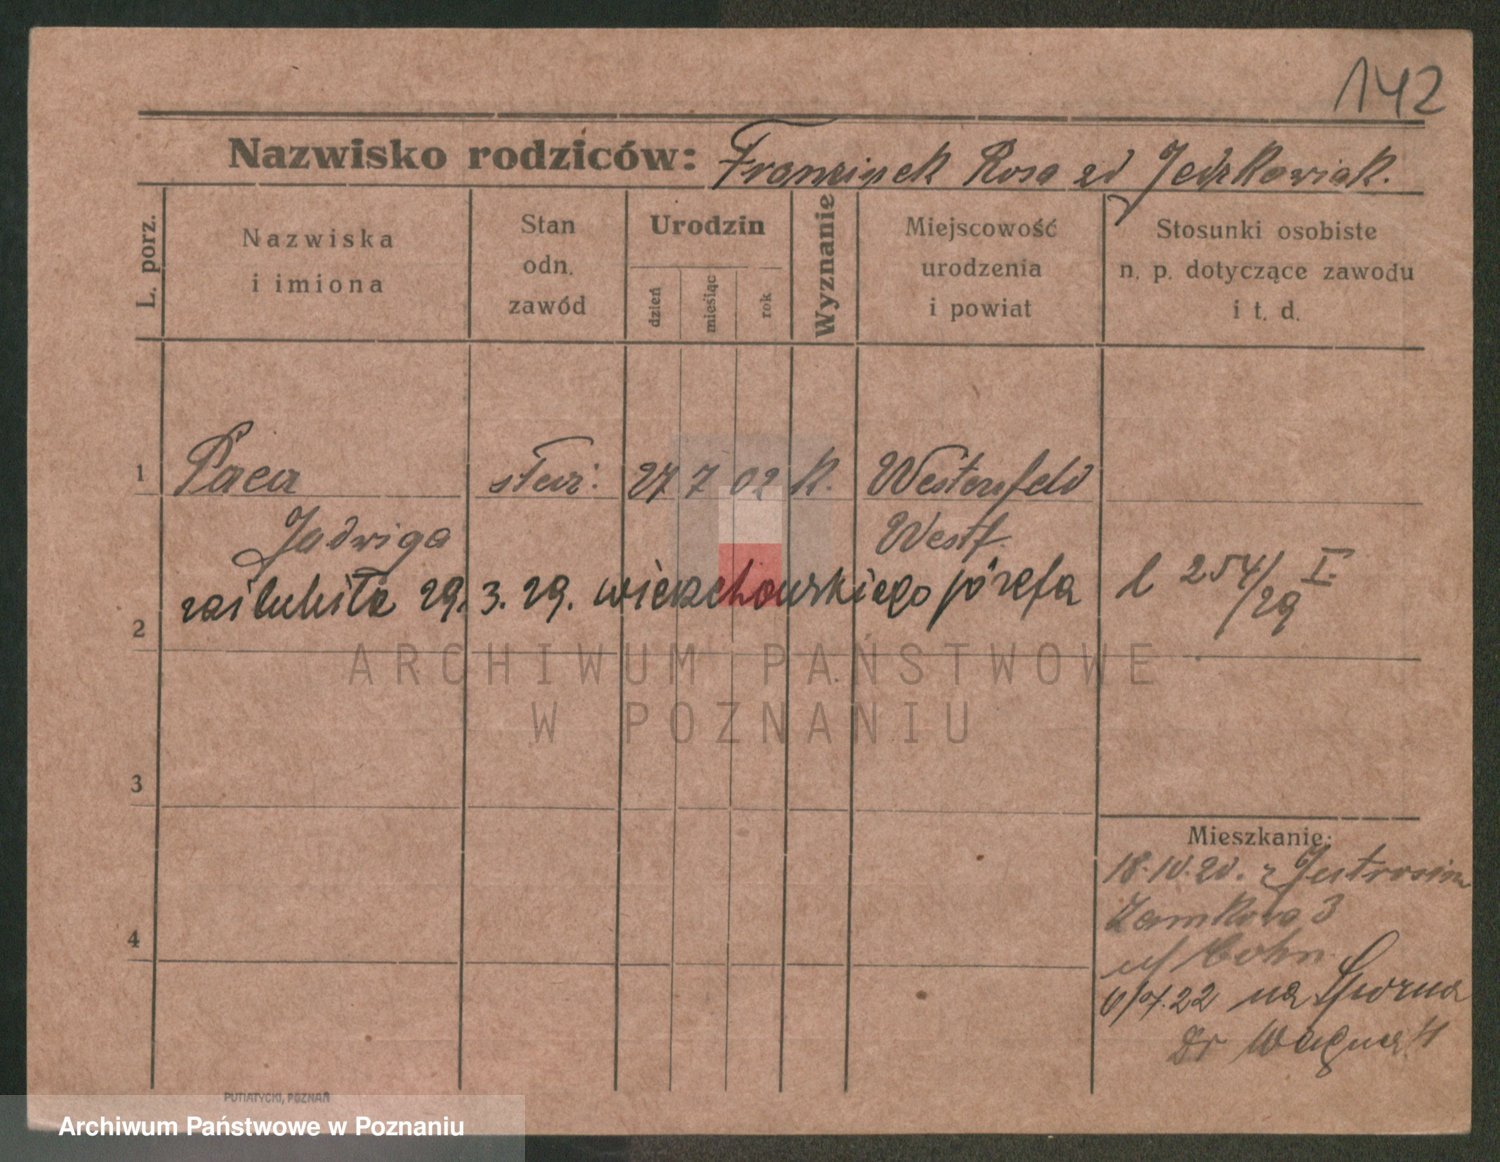 142
Nazwisko rodziców: Franciszek Rosa zd Jedrkowiak.
L. porz.
Nazwiska i imiona
Stan odn. zawód
Urodzin
dzień
miesiąc
rok
Wyznanie
Miejscowość urodzenia i powiat
Stosunki osobiste n. p. dotyczące zawodu i t. d.
1 Paca służ: 27 7 02 K. Westenfeld
Jadwiga Westf.
2 zaślubiła 29. 3. 29. Wierzchowskiego Józefa l 254/29 I.
ARCHIWUM PAŃSTWOWE
W POZNANIU
3
4
Mieszkanie:
18.10.20. z Jutrosin
Zamkowa 3
Cohn
6/7.22 na
Dr Wagner
PUTIATYCKI, POZNAŃ
Archiwum Państwowe w Poznaniu